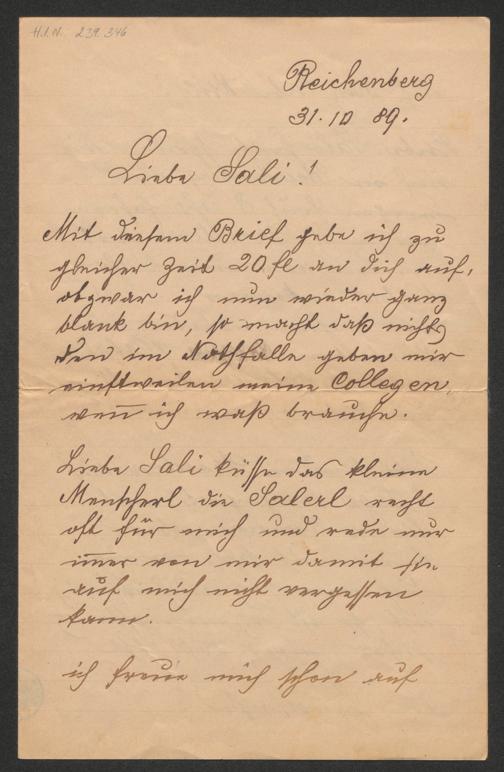 H.I.N. 239.346
Reichenberg
31. 10 89.
Liebe Sali!
Mit diesem Brief gebe ich zu
gleicher Zeit 20 fl an dich auf,
obzwar ich nun wieder ganz
blank bin, so macht daß nichts,
den im Nothfalle geben mir
einstweilen meine Collegen,
wen̄ ich waß brauche.
Liebe Sali küsse das kleine
Menscherl die Salerl recht
oft für mich und rede nur
im̄er von mir damit sie
auf mich nicht vergessen
kann.
ich freue mich schon auf